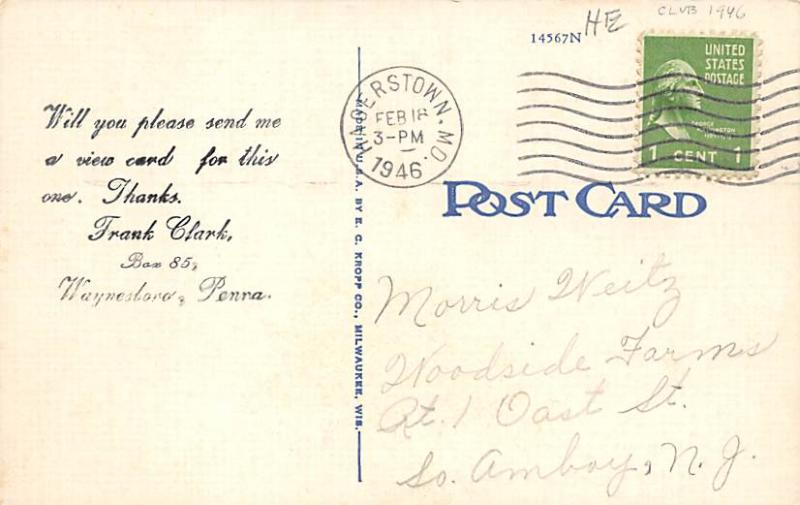 CLUB 1946
HE
14567N
UNITED
STATES
POSTAGE
GEORGE
WASHINGTON
1 CENT 1
HAGERSTOWN, MD.
FEB 18
3-PM
1946
POST CARD
Will you please send me
a view card for this
one. Thanks.
Frank Clark,
Box 85,
Waynesboro, Penna.
BY E. C. KROPP CO., MILWAUKEE, WIS.
Morris Weitz
Woodside Farms
Rt. 1 Oast St.
So. Amboy, N. J.